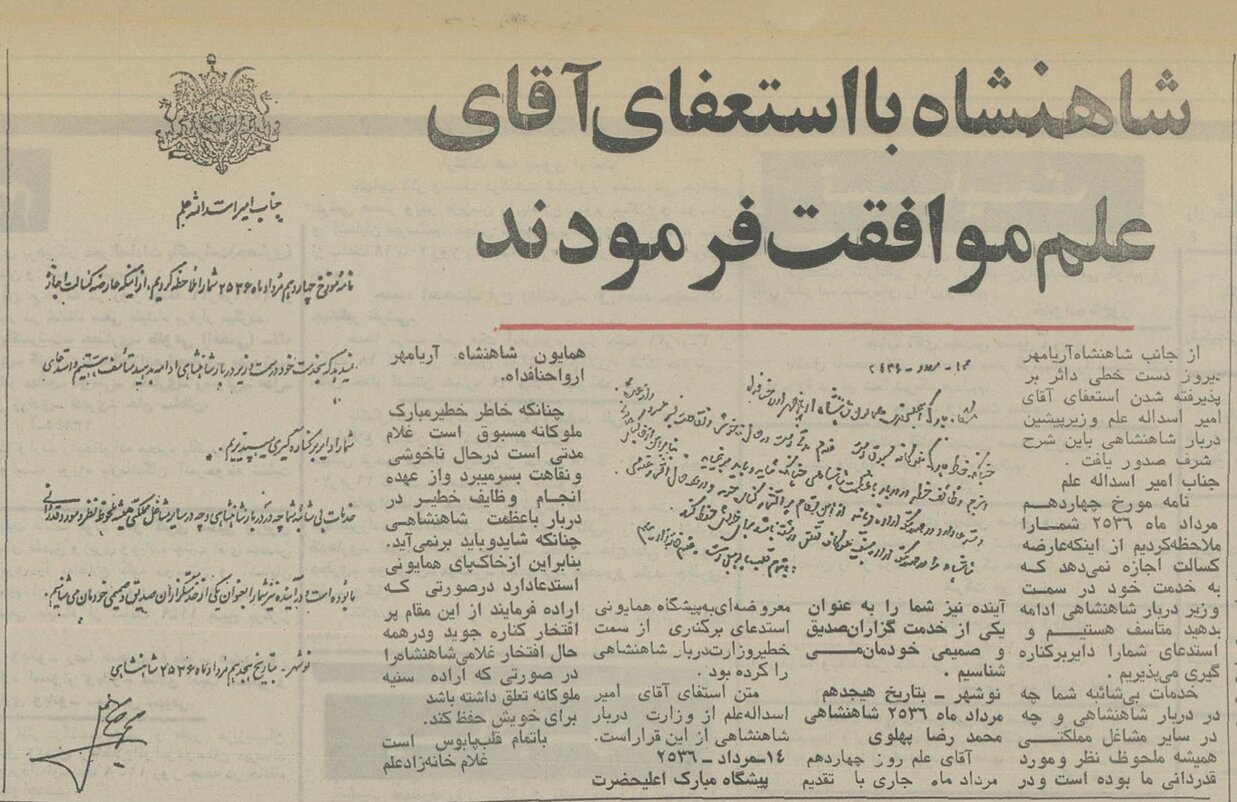 شاهنشاه با استعفای آقای
علم موافقت فرمودند
از جانب شاهنشاه‌آریامهر
دیروز دست خطی دائر بر
پذیرفته شدن استعفای آقای
امیر اسداله علم وزیرپیشین
دربار شاهنشاهی باین شرح
شرف صدور یافت .
جناب امیر اسداله علم
نامه مورخ چهاردهم
مرداد ماه ۲۵۳۶ شمارا
ملاحظه‌کردیم از اینکه‌عارضه
کسالت اجازه نمی‌دهد که
به خدمت خود در سمت
وزیر دربار شاهنشاهی ادامه
بدهید متاسف هستیم و
استدعای شمارا دایربرکناره
گیری می‌پذیریم .
خدمات بی‌شائبه شما چه
در دربار شاهنشاهی و چه
در سایر مشاغل مملکتی
همیشه ملحوظ نظر ومورد
قدردانی ما بوده است ودر
آینده نیز شما را به عنوان
یکی از خدمت گزاران‌صدیق
و صمیمی خودمان‌می
شناسیم .
نوشهر ـ بتاریخ هیجدهم
مرداد ماه ۲۵۳۶ شاهنشاهی
محمد رضا پهلوی
آقای علم روز چهاردهم
مرداد ماه جاری با تقدیم
معروضه‌ای‌به‌پیشگاه همایونی
استدعای برکناری از سمت
خطیروزارت‌دربار شاهنشاهی
را کرده بود .
متن استفای آقای امیر
اسداله‌علم از وزارت دربار
شاهنشاهی از این قراراست.
۱٤ـمرداد ـ ۲۵۳٦
پیشگاه مبارک اعلیحضرت
همایون شاهنشاه آریامهر
ارواحنافداه.
چنانکه خاطر خطیرمبارک
ملوکانه مسبوق است غلام
مدتی است درحال ناخوشی
و نقاهت بسرمیبرد واز عهده
انجام وظایف خطیر در
دربار باعظمت شاهنشاهی
چنانکه شایدوباید برنمی‌آید.
بنابراین ازخاک‌پای همایونی
استدعادارد درصورتی که
اراده فرمایند از این مقام پر
افتخار کناره جوید ودرهمه
حال افتخار غلامی‌شاهنشاه‌را
در صورتی که اراده سنیه
ملوکانه تعلق داشته باشد
برای خویش حفظ کند.
باتمام قلب‌پابوس است
غلام خانه‌زادعلم
جناب امیر اسدالله علم
نامه مورخ چهاردهم مرداد ماه ۲۵۳۶ شما را ملاحظه کردیم. از اینکه عارضه کسالت اجازه
نمیدهد که بخدمت خود در سمت وزیر دربار شاهنشاهی ادامه بدهید متأسف هستیم و استدعای
شما را دایر بر کناره گیری می‌پذیریم.
خدمات بی شائبه شما چه در دربار شاهنشاهی و چه در سایر مشاغل مملکتی همیشه ملحوظ نظر و مورد قدردانی
ما بوده است و در آینده نیز شما را بعنوان یکی از خدمتگزاران صدیق و صمیمی خودمان می شناسیم.
نوشهر - بتاریخ هیجدهم مرداد ماه ۲۵۳۶ شاهنشاهی